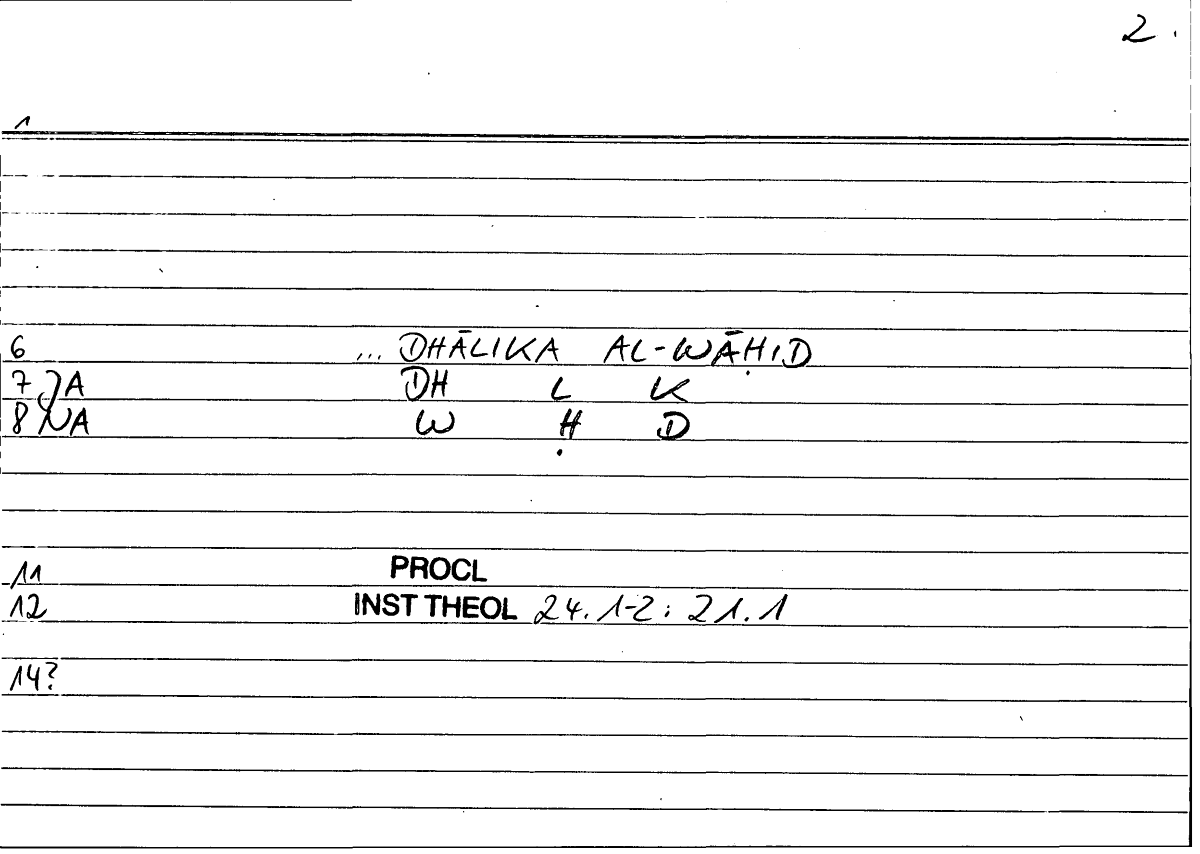 2.
1
6 ... DHĀLIKA AL-WĀḤID
7 JA DH L K
8 NA W Ḥ D
11 PROCL
12 INST THEOL 24.1-2 : 21.1
14?